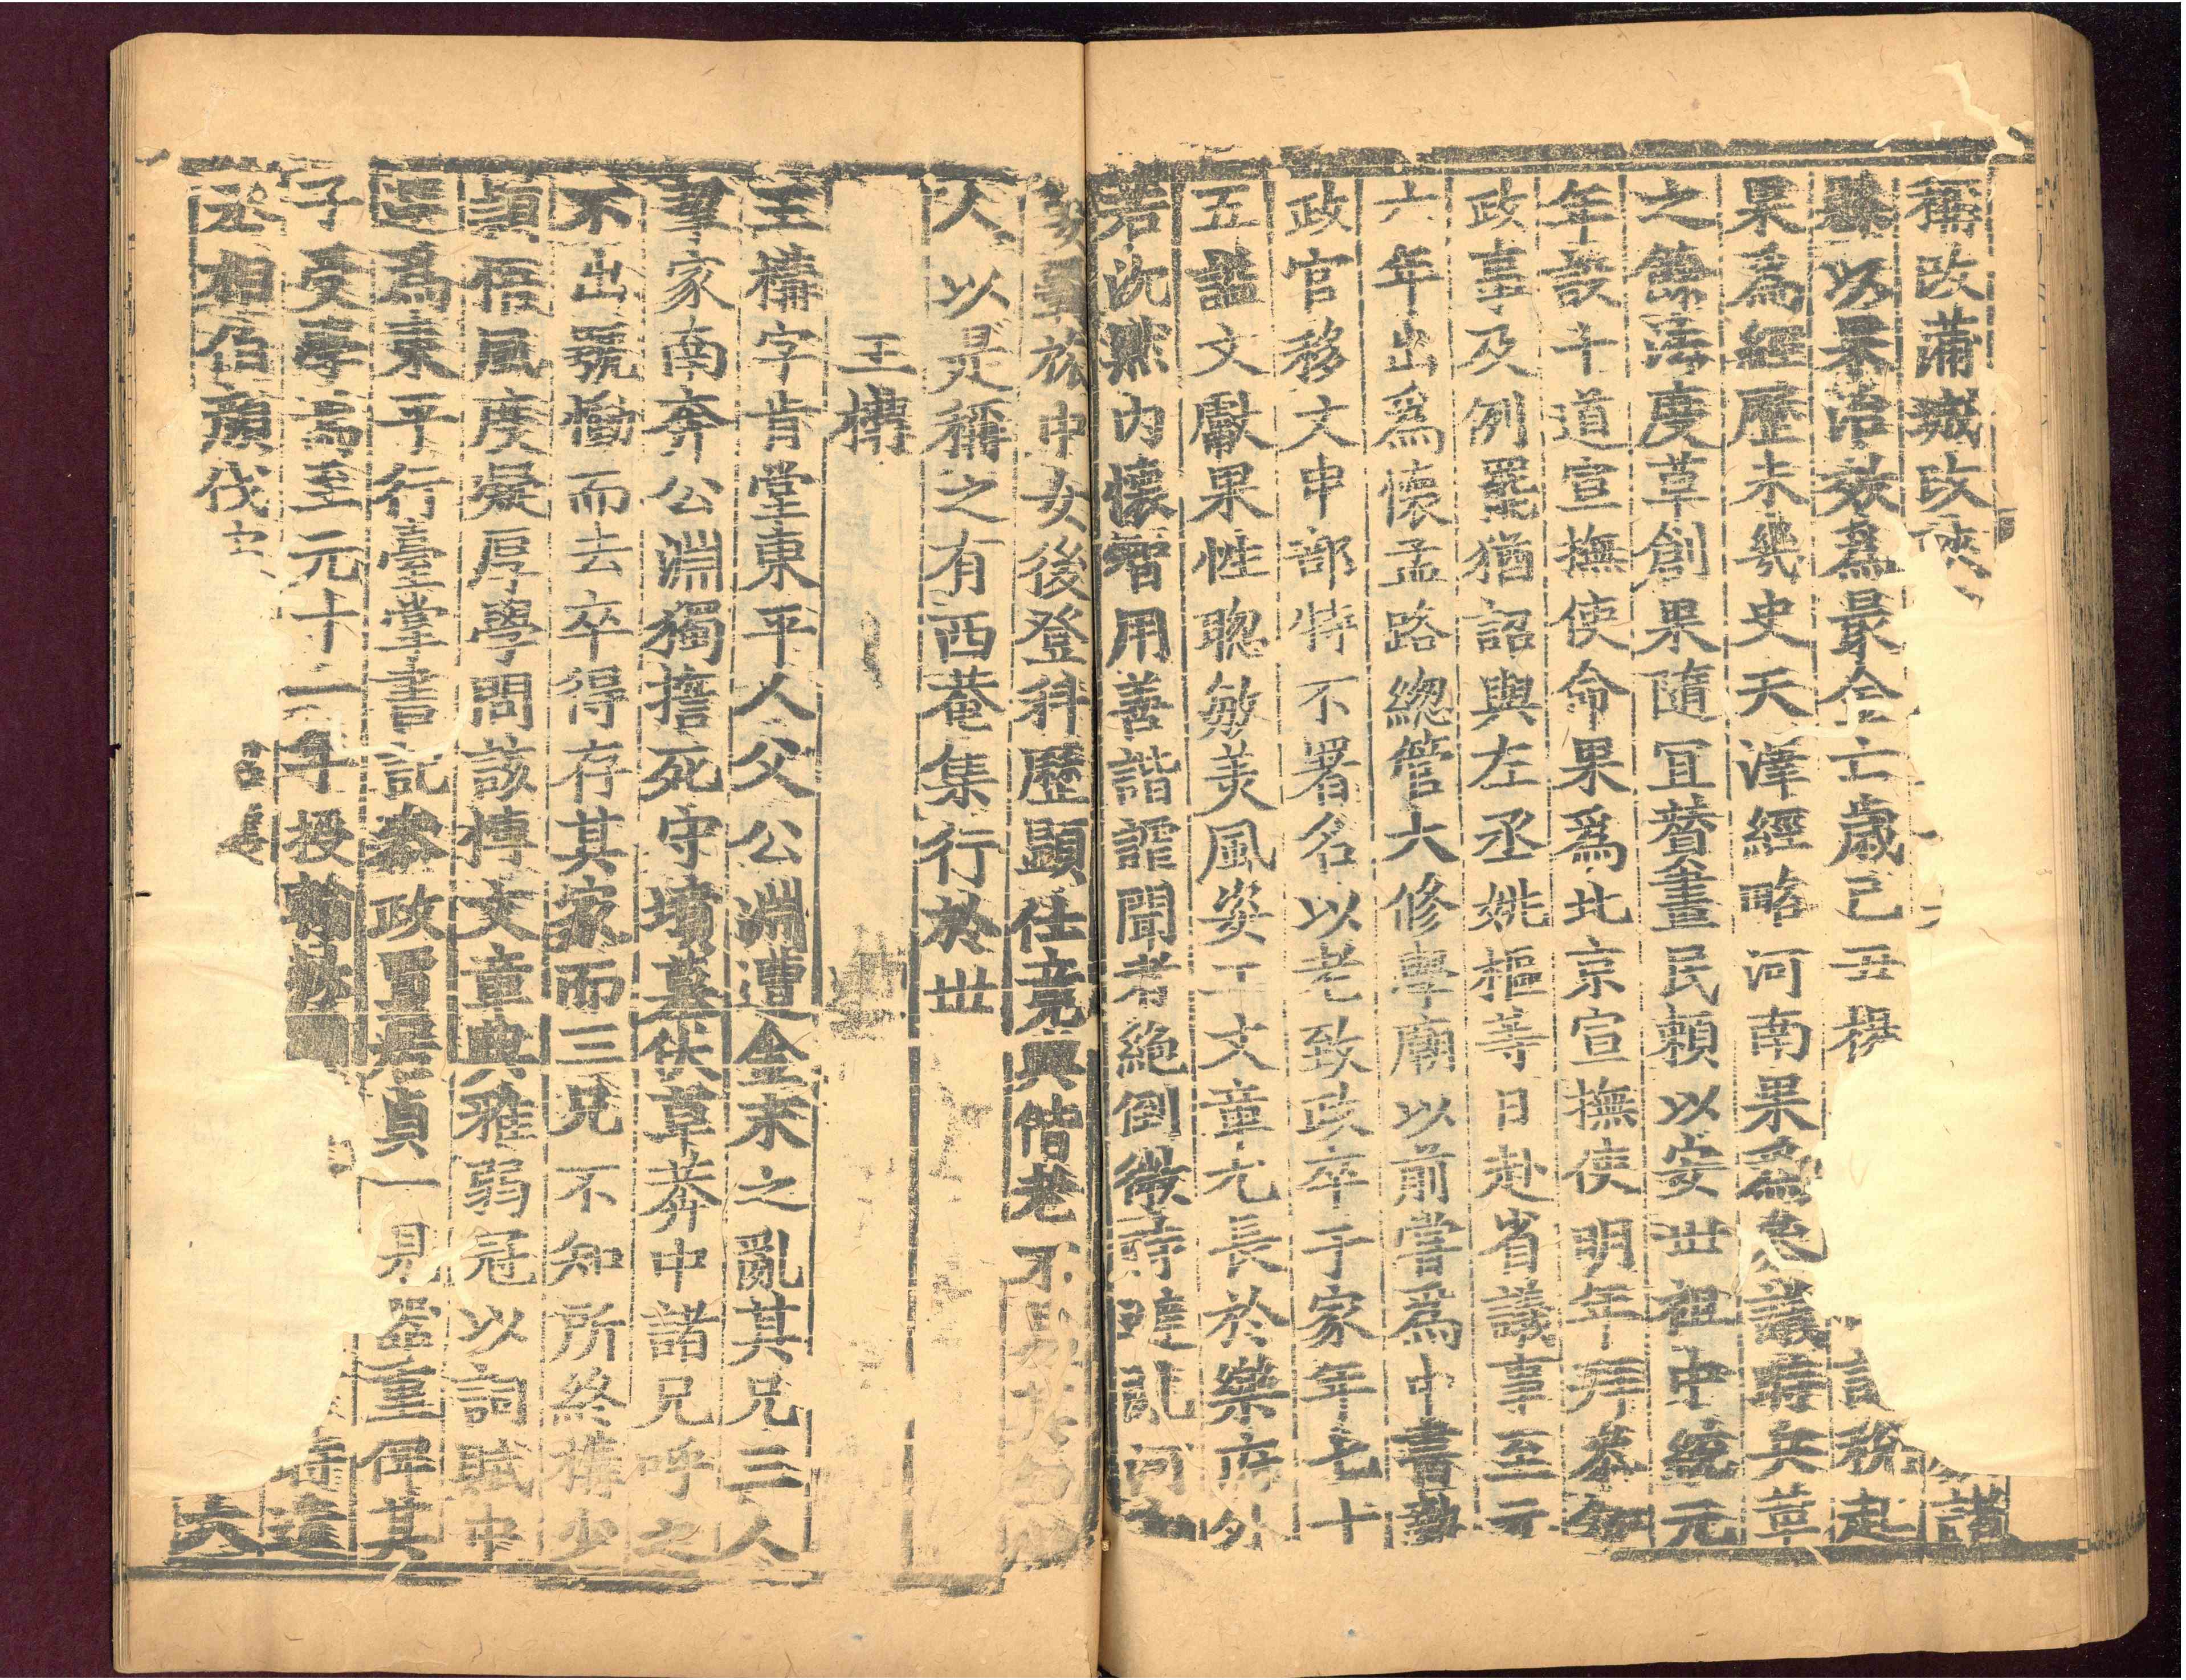 稱改蒲城改陜
諸
縣以果治效爲最金亡歲己丑楊
課稅起
果爲經歷未幾史天澤經略河南果爲參議時兵革
之餘法度草創果隨冝賛畫民頼以安丗祖中統元
年設十道宣撫使命果爲北京宣撫使明年拜參知
政事及例罷猶詔與左丞姚樞等日赴省議事至元
六年出爲懷孟路緫管大修學廟以前嘗爲中書執
政官移文申部特不署名以老致政卒于家年七十
五諡文獻果性聡敏美風姿工文章尤長於樂府外
若沈黙内懷智用善諧謔聞者絶倒微時避亂河
旅中女後登科歷顯仕竟與偕老不易其初
人以是稱之有西菴集行於丗
王構
王構字肯堂東平人父公淵遭金末之亂其兄三人
挈家南奔公淵獨誓死守墳墓伏草莽中諸兄呼之
不出號慟而去卒得存其家而三兄不知所終構少
穎悟風度凝厚學問該博文章典雅弱冠以詞賦中
選爲東平行臺掌書記參政賈居貞一見器重俾其
子受學焉至元十一年授翰林
時遣
丞相伯顔伐
六